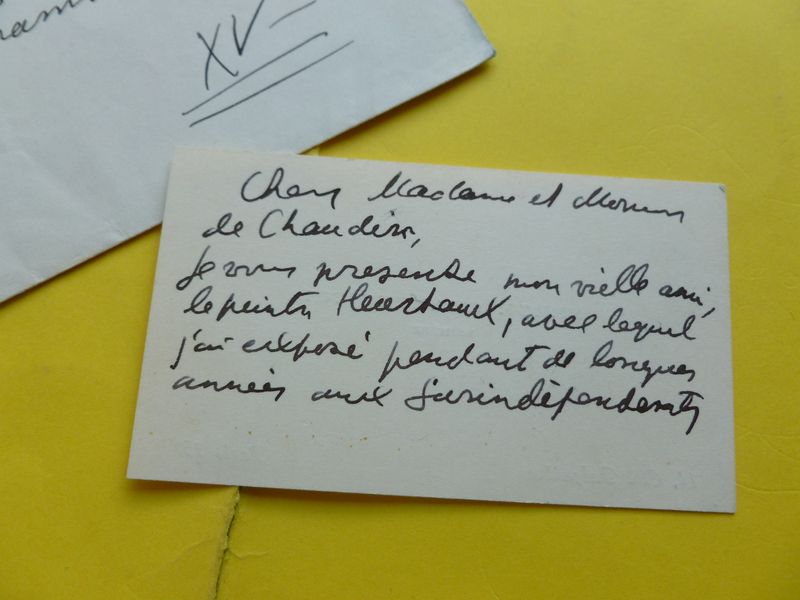 XV
Chers Madame et Monsieur
de Chaudin,
je vous presente mon vielle ami,
le peintre Heurtaux, avec lequel
j'ai exposé pendant de longues
années aux Surindépendants